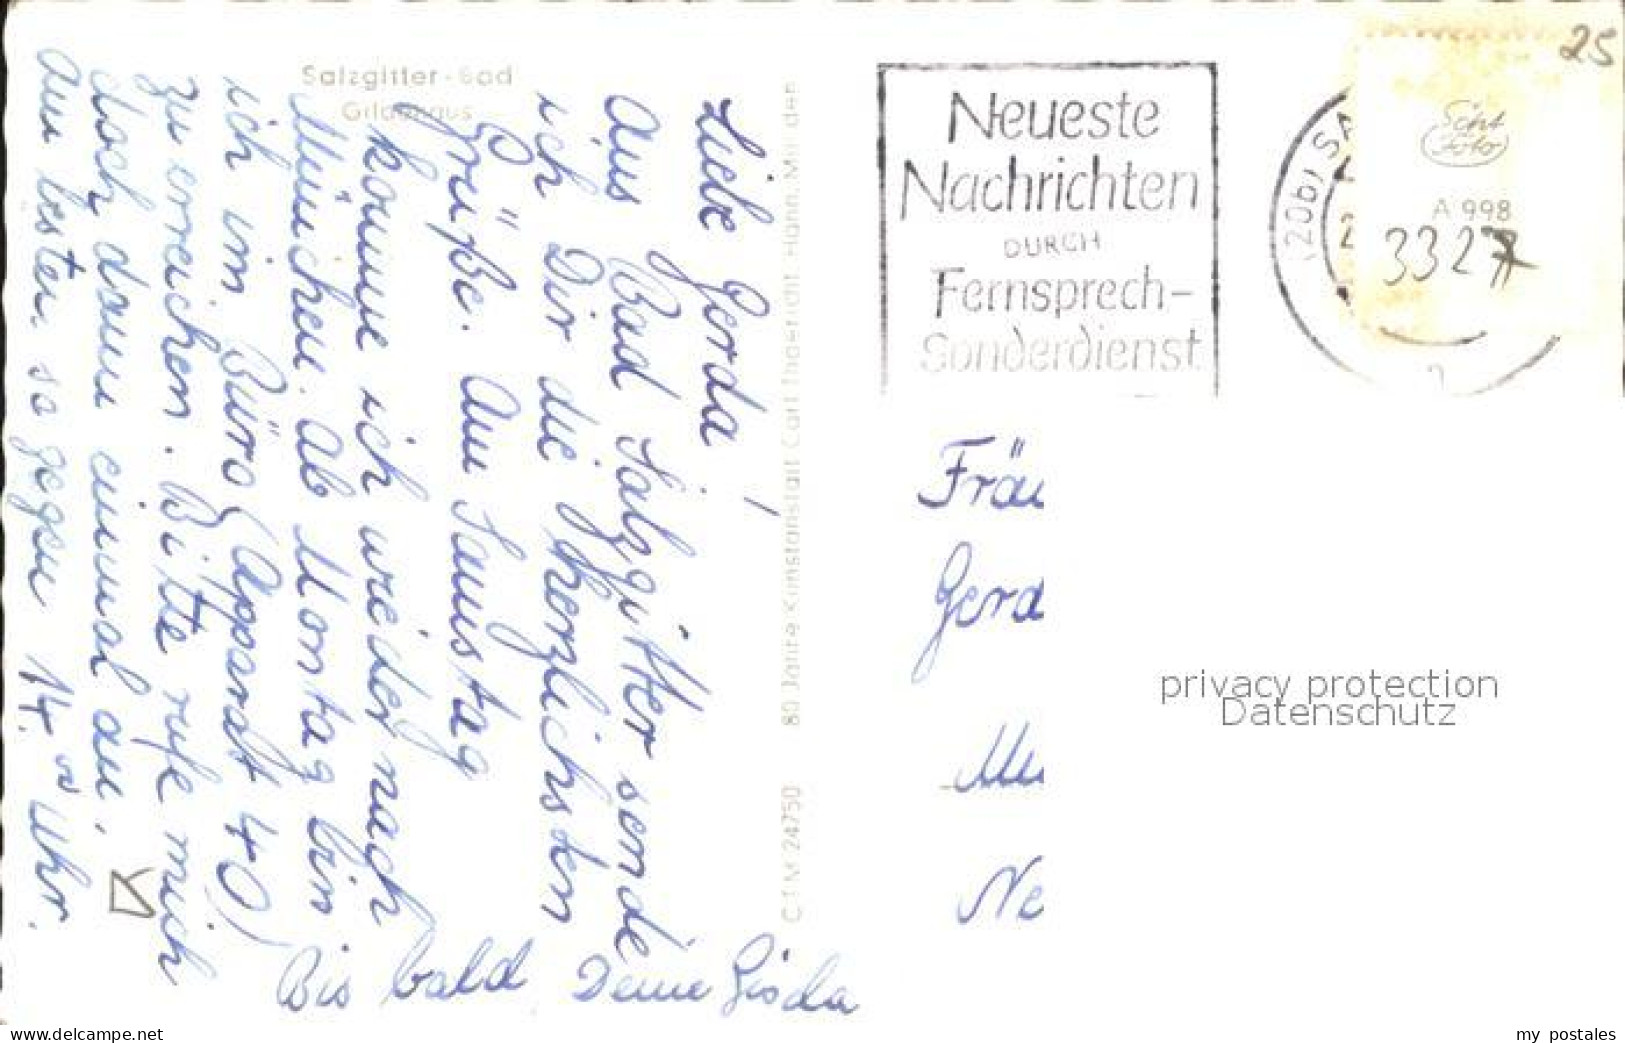 Salzgitter-Bad
Gildehaus
Liebe Gerda!
Aus Bad Salzgitter sende
ich Dir die herzlichsten
Grüße. Am Samstag
komme ich wieder nach
München. Ab Montag bin
ich im Büro (Apparat 40)
zu erreichen. Bitte rufe mich
doch dann einmal an,
am besten so gegen 14.00 Uhr.
Bis bald Deine Gisela
C.T.M. 24750
80 Jahre Kunstanstalt Carl Thoericht, Hann. Münden
Neueste
Nachrichten
DURCH
Fernsprech-
Sonderdienst
(20b) SA
25
Foto
A 998
3327
Fräu
Gerd
Mü
Ne
privacy protection
Datenschutz
www.delcampe.net
my_postales